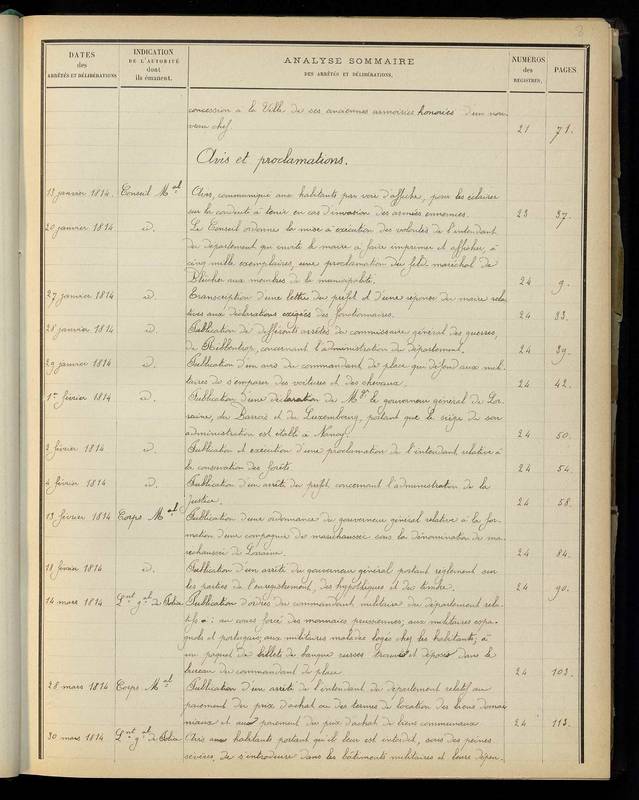 8
DATES
des
ARRÊTÉS ET DÉLIBÉRATIONS
INDICATION
DE L'AUTORITÉ
dont
ils émanent.
ANALYSE SOMMAIRE
DES ARRÊTÉS ET DÉLIBÉRATIONS.
NUMÉROS
des
REGISTRES.
PAGES
concession à la Ville de ses anciennes armoiries honorées d'un nou-
veau chef. 21 71.
Avis et proclamations.
13 janvier 1814. Conseil Mal Avis, communiqué aux habitants par voie d'affiche, pour les éclairer
sur la conduite à tenir en cas d'invasion des armées ennemies. 23 37.
20 janvier 1814 id. Le Conseil ordonne la mise à exécution des volontés de l'intendant
du département, qui invite le maire à faire imprimer et afficher, à
cinq mille exemplaires, une proclamation du feld-maréchal de
Blücher aux membres de la municipalité. 24 9.
27 janvier 1814 id. Transcription d'une lettre du préfet et d'une réponse du maire rela-
tives aux déclarations exigées des fonctionnaires. 24 33.
28 janvier 1814 id. Publication de différents arrêtés du commissaire général des guerres,
de Ribbentrop, concernant l'administration du département. 24 39.
29 janvier 1814 id. Publication d'un avis du commandant de place qui défend aux mili-
taires de s'emparer des voitures et des chevaux. 24 42.
1er février 1814 id. Publication d'une déclaration de Mgr le gouverneur général de Lor-
raine, du Barrois et du Luxembourg, portant que le siège de son
administration est établi à Nancy. 24 50.
2 février 1814 id. Publication et exécution d'une proclamation de l'intendant relative à
la conservation des forêts. 24 54.
4 février 1814 id. Publication d'un arrêté du préfet concernant l'administration de la
justice. 24 58.
13 février 1814 Corps Mal Publication d'une ordonnance du gouverneur général relative à la for-
mation d'une compagnie de maréchaussée sous la dénomination de ma-
réchaussée de Lorraine. 24 84.
18 février 1814 id. Publication d'un arrêté du gouverneur général portant règlement sur
les parties de l'enregistrement, des hypothèques et du timbre. 24 90.
14 mars 1814 Lnt gal de Police Publication d'ordres du commandant militaire du département rela-
tifs : au cours forcé des monnaies prussiennes; aux militaires espa-
gnols et portugais; aux militaires malades logés chez les habitants; à
un paquet de billets de banque russes trouvé et déposé dans le
bureau du commandant de place. 24 103.
28 mars 1814 Corps Mal Publication d'un arrêté de l'intendant du département relatif au
paiement du prix d'achat ou des termes de location des biens doma-
niaux et au paiement du prix d'achat de biens communaux 24 113.
30 mars 1814 Lnt gal de Police Avis aux habitants portant qu'il leur est interdit, sous des peines
sévères, de s'introduire dans les bâtiments militaires et leurs dépen-